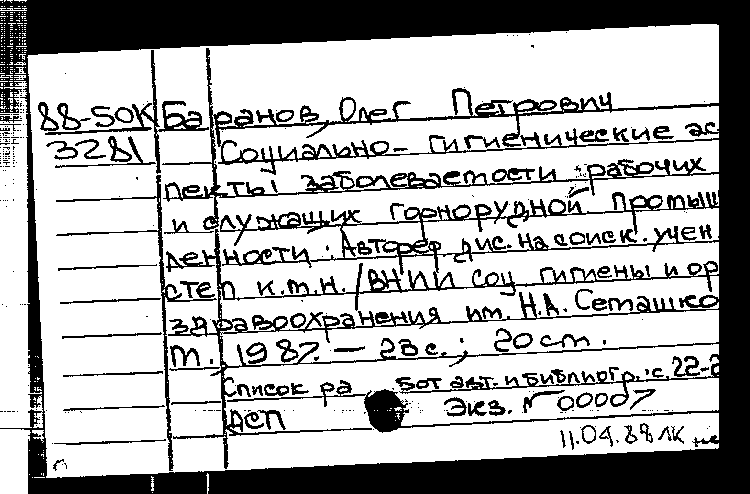 88-50К Баранов, Олег Петрович
3281 Социально-гигиенические ас
пекты заболеваемости рабочих
и служащих горнорудной промыш
ленности : Автореф. дис. на соиск. учен.
степ к.м.н. / ВНИИ соц. гигиены и ор
здравоохранения им. Н.А. Семашко
М., 1987. — 23 с. ; 20 см.
Список работ авт. и библиогр.: с. 22-2
ДСП Экз. № 00007
11.04.88 ЛК